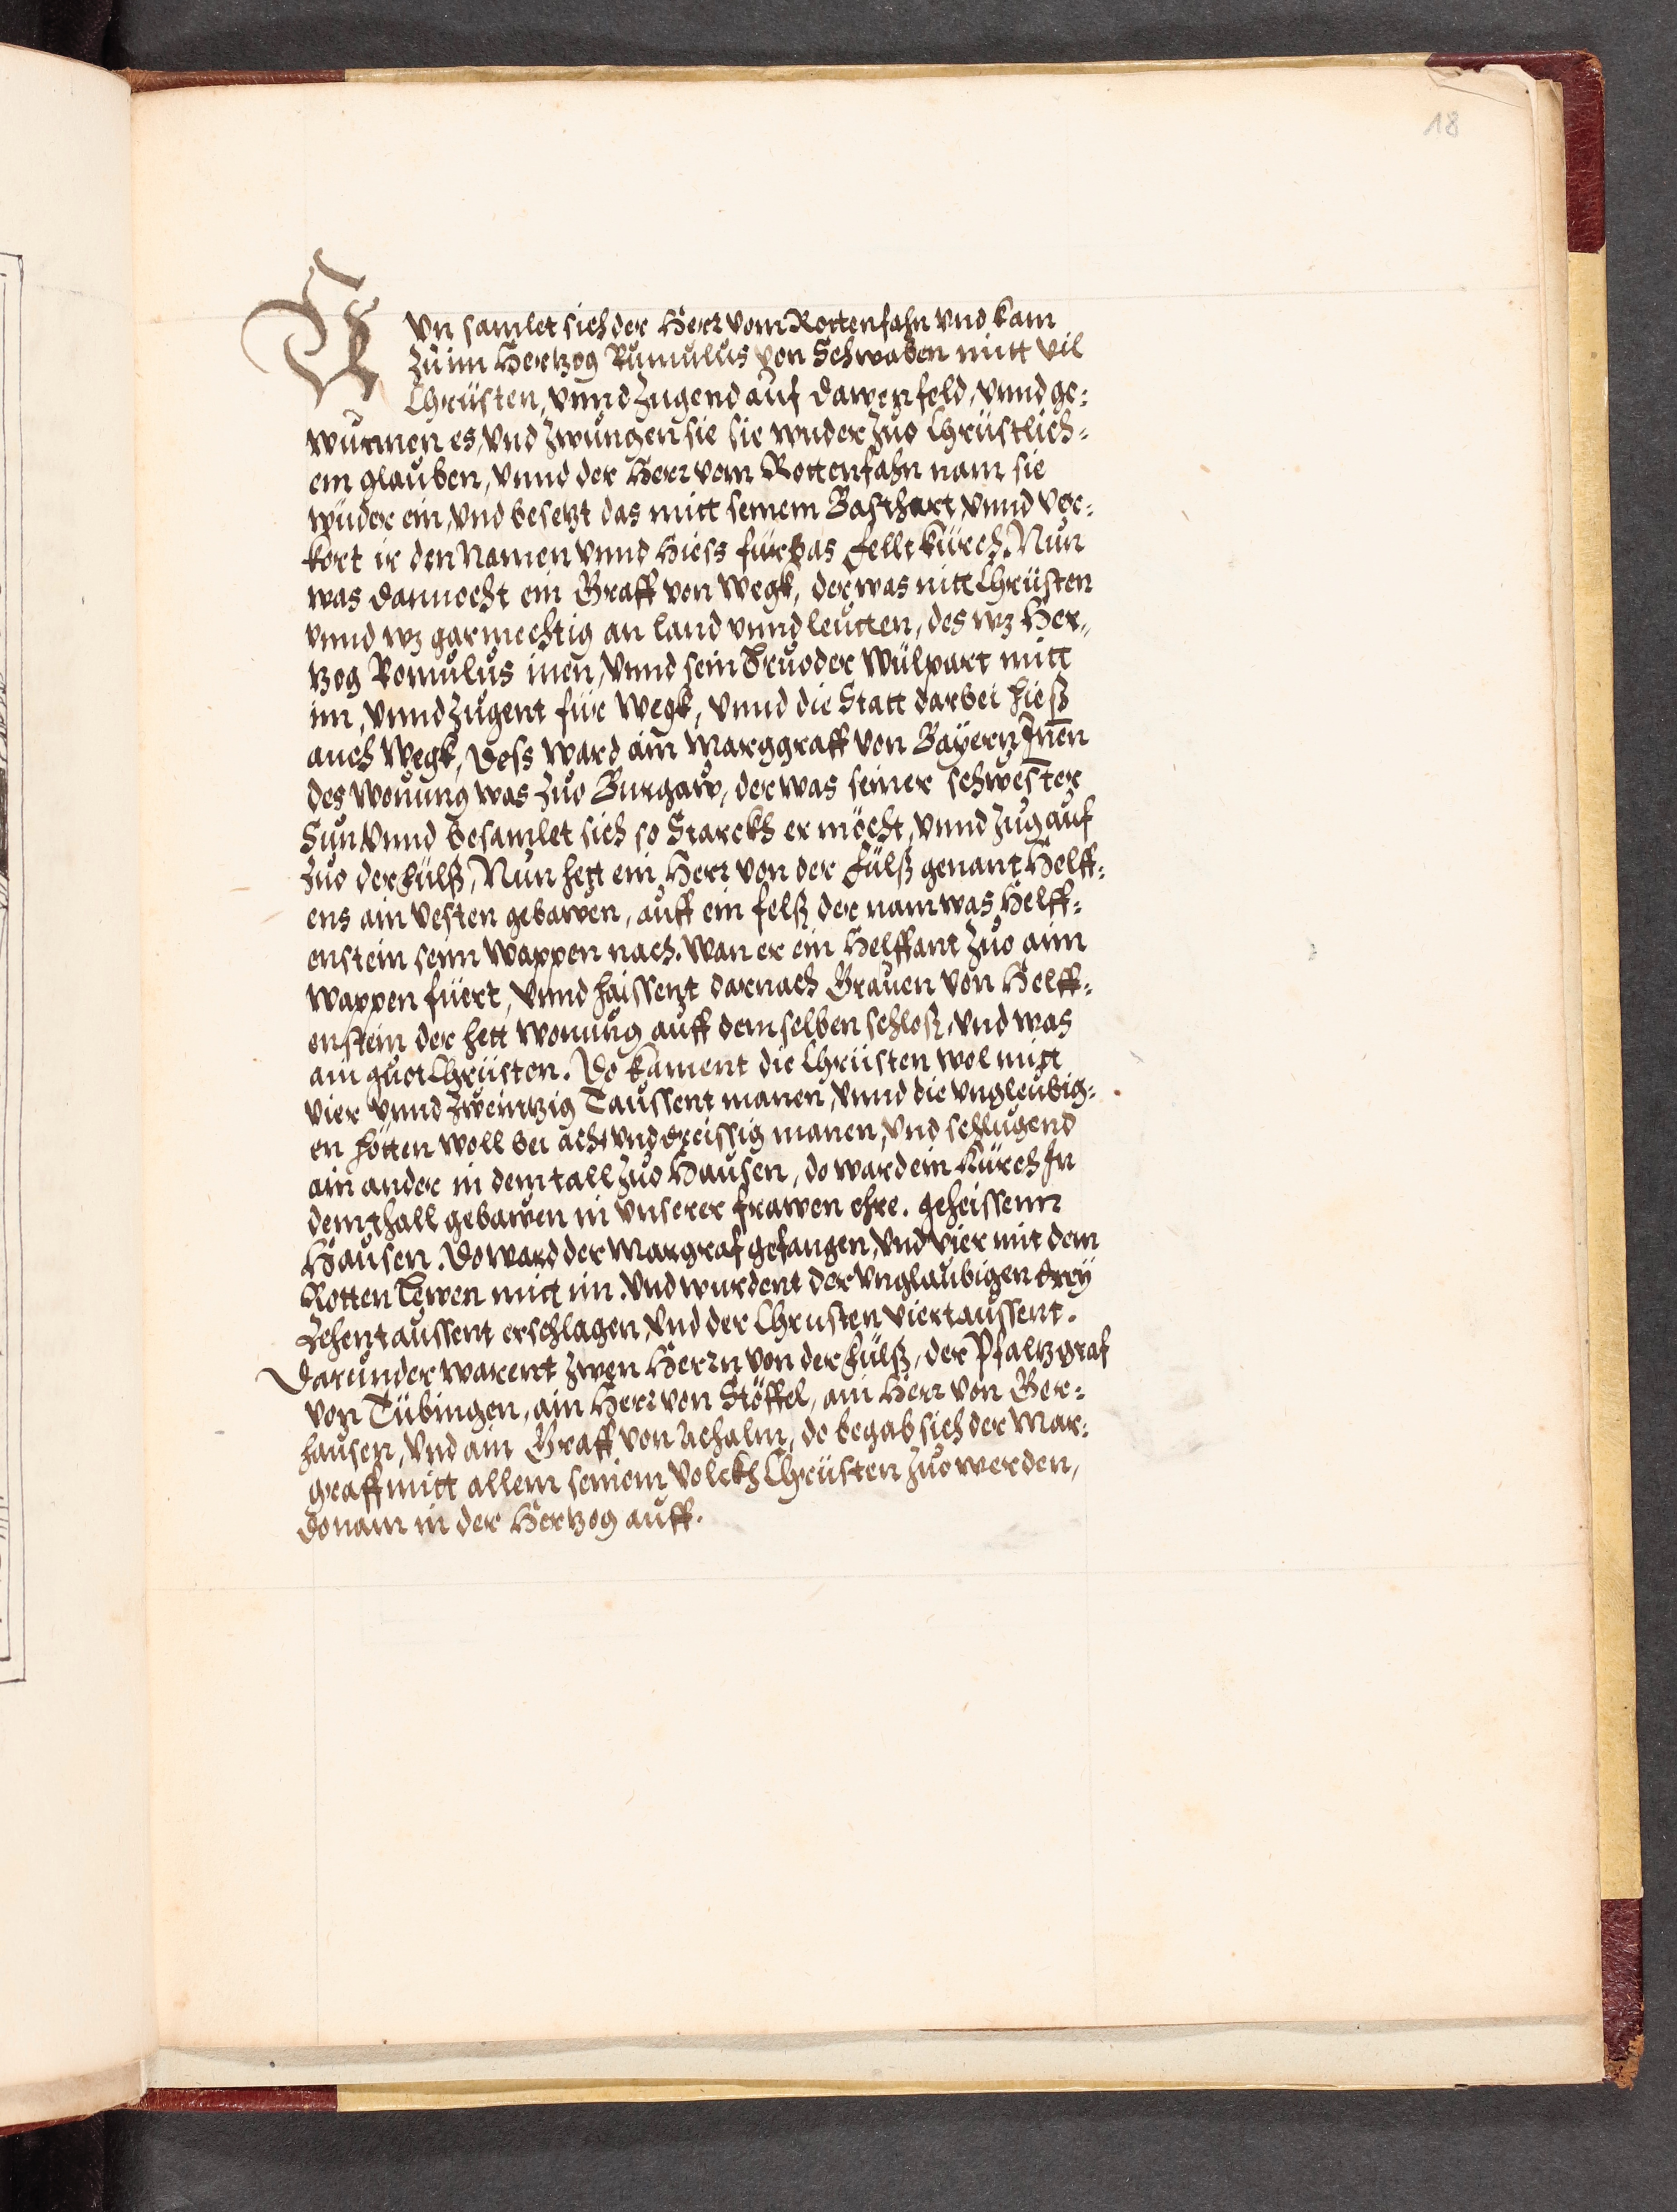 18
Nun samlet sich der Herr vom Rottenfahn vnd kam
Zu im Hertzog Rumulus von Schwaben mitt vil
Chrüsten, vnnd zugend auf Dawen feld, vnnd ge:
wunnen es, vnd zwungen sie sie wider zuo Chrüstlich:
em glauben, vnnd der Herr vom Rottenfahn nam sie
wider ein, vnd besetzt das mitt seinem Basthart, vnnd ver:
kert ir den Namen vnnd Hiess fürbas Feltkürch. Nun
was dannocht ein Graff von Wegk, der was nitt Chrüsten
vnnd wz gar mechtig an land vnnd leutten, des wz Her„
tzog Romulus inen, vnnd sein bruoder Wülpart mitt
im, vnnd zugent für Wegk, vnnd die Statt darbei hieß
auch Wegk, Dess ward ain Marggraff von Bayern Inen
des wonung was zuo Burgaw, der was seiner schwester
Sun vnnd besamlet sich so Starckh er möcht, vnnd zug auf
zuo der Fülß, Nun hett ein Herr von der Fülß genant Helff:
ens ain vesten gebawen, auff ein felß der nam was Helff:
enstein seim Wappen nach. Wan er ein Helffant zuo aim
Wappen füert, vnnd haissent darnach Grauen von Helff:
enstein der hett wonung auff dem selben schloß, vnd was
ain guot Chrüsten. Do kament die Chrüsten wol mitt
vier vnnd zweintzig Taussent manen, vnnd die vngleubig:
en hötten woll bei acht vnd dreissig manen, vnd schlugend
ain ander in dem tall zuo Hausen, do ward ein Kürch In
dem thall gebawen in vnserer frawen ehre. geheissenn
Hausen. Do ward der Margraf gefangen, vnd vier mit dem
Rotten Lewen mitt im. vnd wurdent der vnglaubigen drey
Zehentaussent erschlagen, vnd der Chrusten viertaussent.
Darunder warent zwen Herrn von der Fülß, der Pfaltzgraf
von Tübingen, ain Herr von Stöffel, ain Herr von Ber:
hausen, vnd ain Graff von Achalm, do begab sich der Mar:
graff mitt allem seinem volckh Chrüsten zuo werden,
do nam in der Hertzog auff.